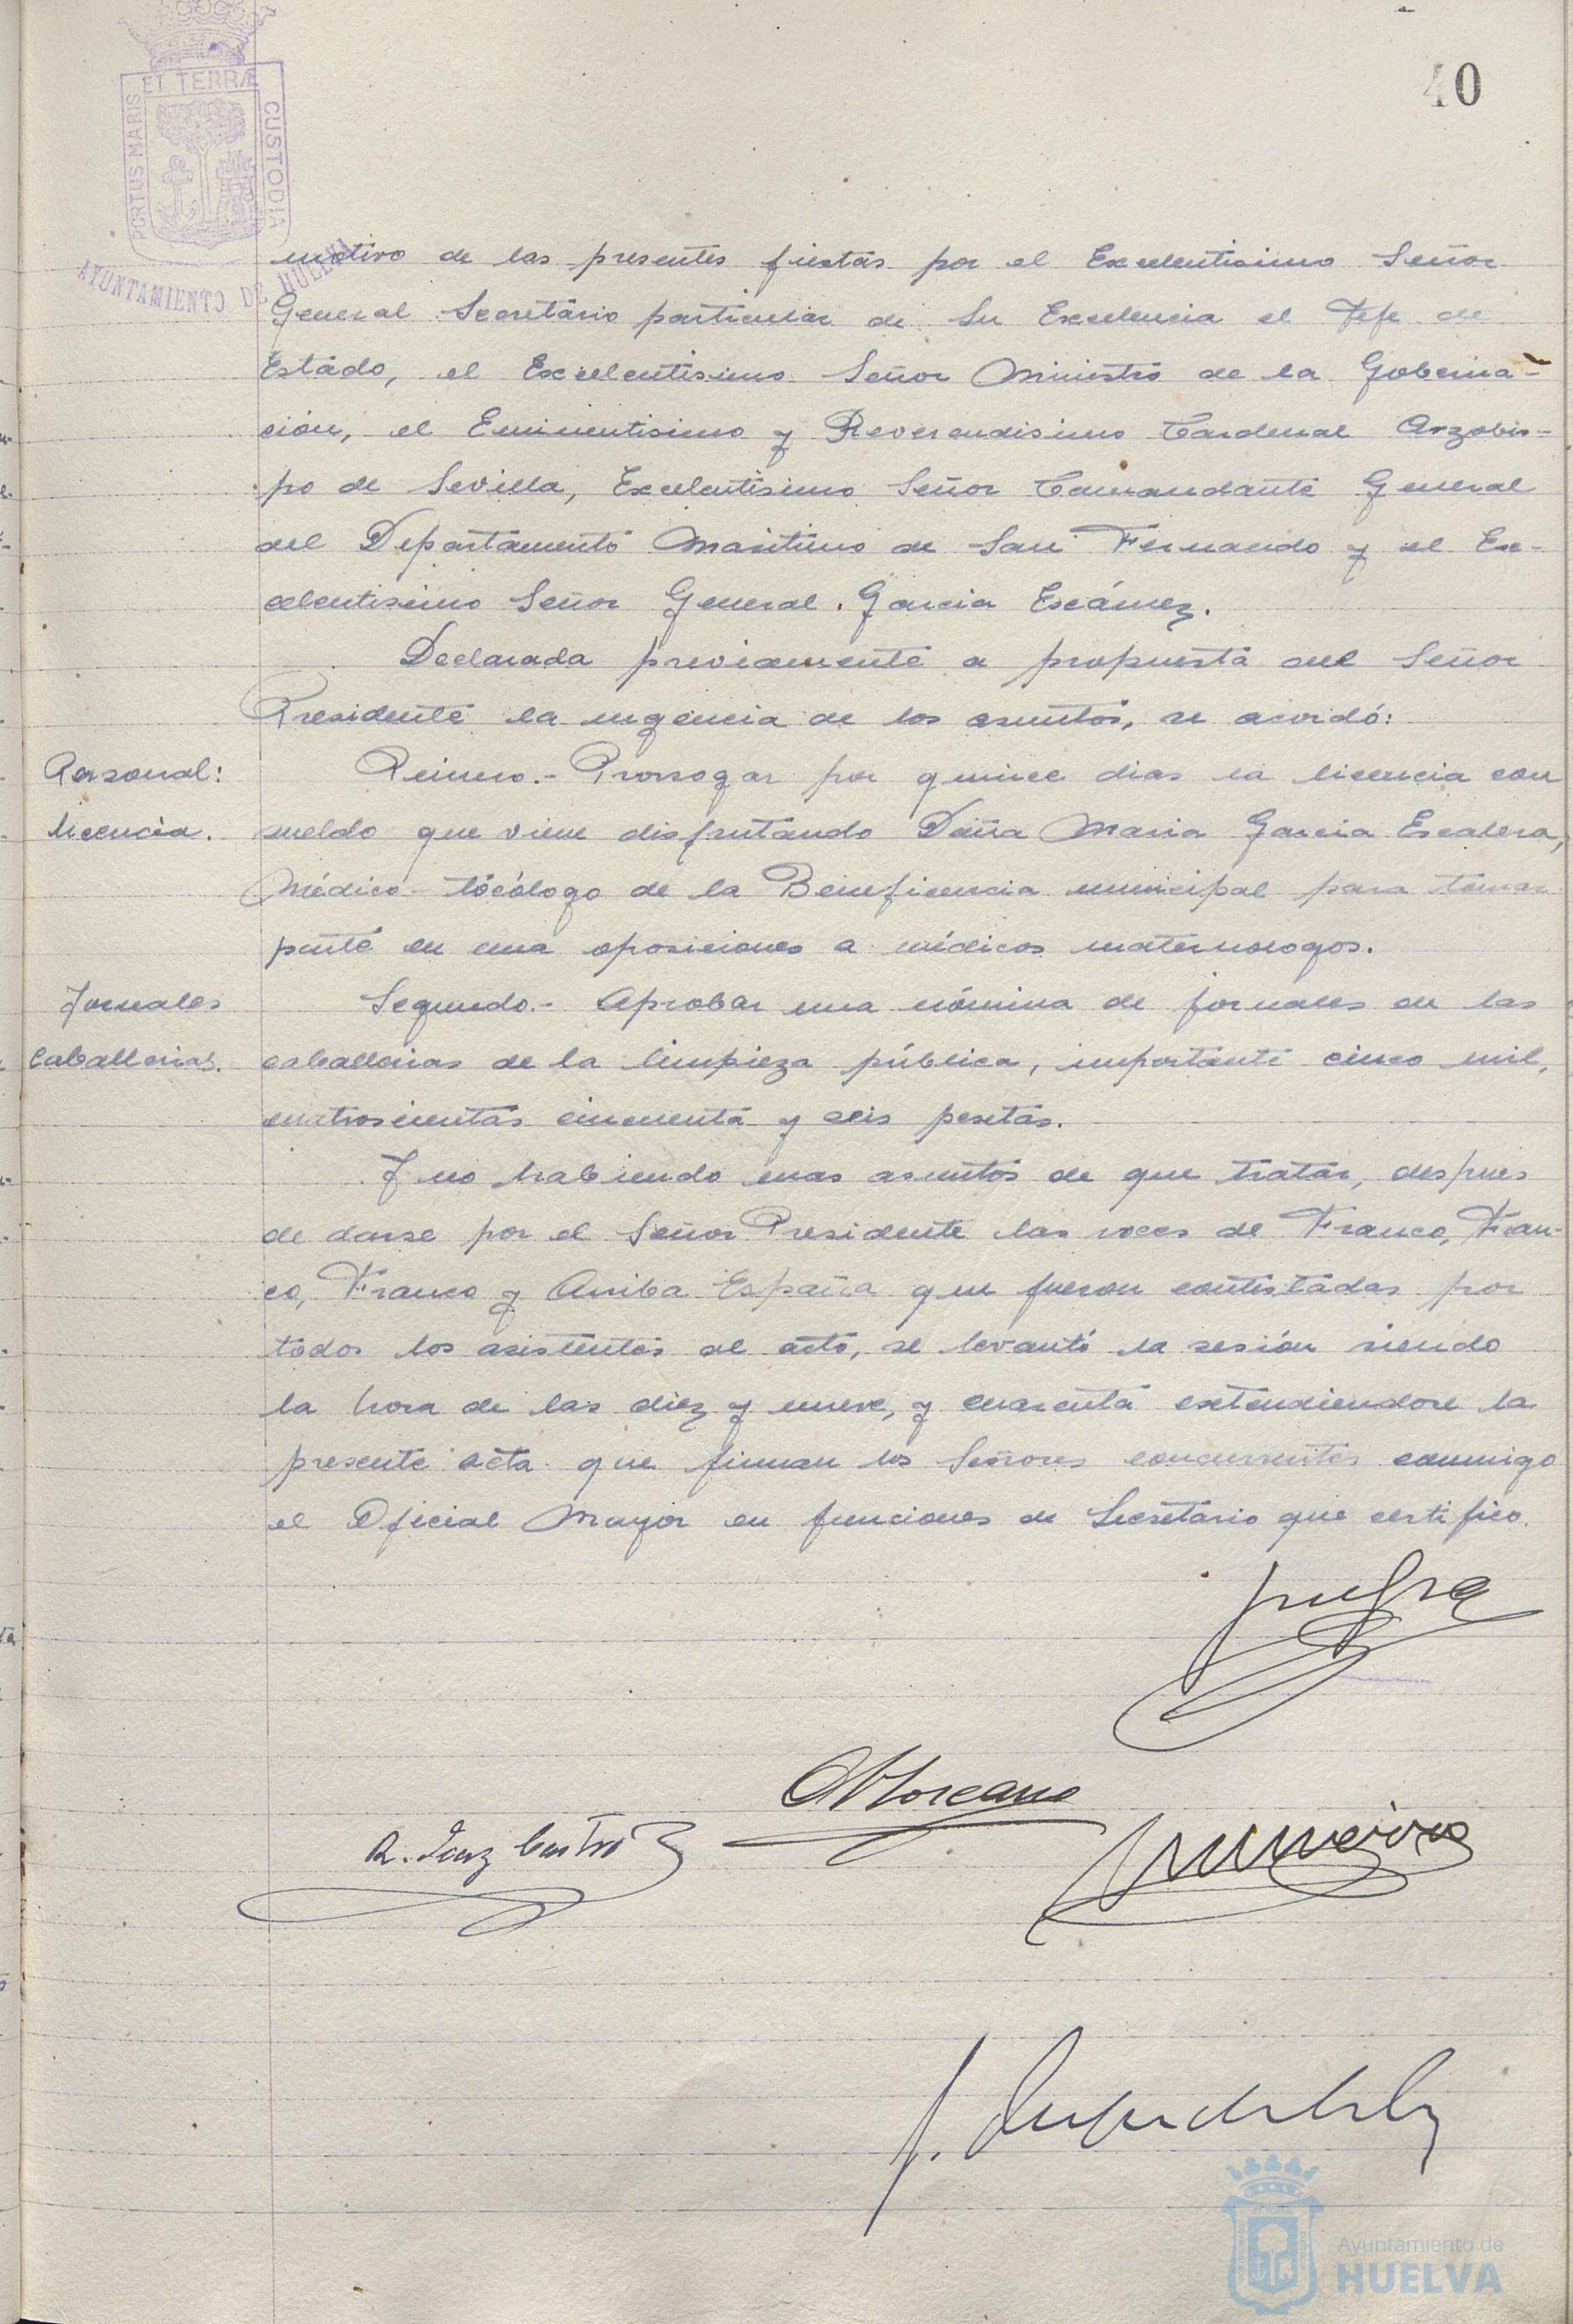 40
ET TERRÆ
PORTUS MARIS
CUSTODIA
AYUNTAMIENTO DE HUELVA
motivo de las presentes fiestas por el Excelentisimo Señor
General Secretario particular de Su Excelencia el Jefe de
Estado, el Excelentisimo Señor Ministro de la Goberna-
ción, el Eminentisimo y Reverendisimo Cardenal Arzobis-
po de Sevilla, Excelentisimo Señor Comandante General
del Departamento Maritimo de San Fernando y el Exc-
celentisimo Señor General Garcia Escámez.
Declarada previamente a propuesta del Señor
Presidente la urgencia de los asuntos, se acordó:
Personal:
licencia.
Primero.- Prorrogar por quince dias la licencia con
sueldo que viene disfrutando Doña Maria Garcia Escalera,
Médico-tocólogo de la Beneficencia municipal para tomar
parte en una oposiciones a médicos maternologos.
Jornales
Caballerias.
Segundo.- Aprobar una nómina de jornales en las
caballerias de la limpieza pública, importante cinco mil,
cuatrocientas cincuenta y seis pesetas.
Y no habiendo mas asuntos de que tratar, despues
de darse por el Señor Presidente las voces de Franco, Fran-
co, Franco y Arriba España que fueron contestadas por
todos los asistentes al acto, se levantó la sesión siendo
la hora de las diez y nueve, y cuarenta extendiendose la
presente acta que firman los Señores concurrentes conmigo
el Oficial Mayor en funciones de Secretario que certifico.
R. Diaz Castro
Ayuntamiento de
HUELVA